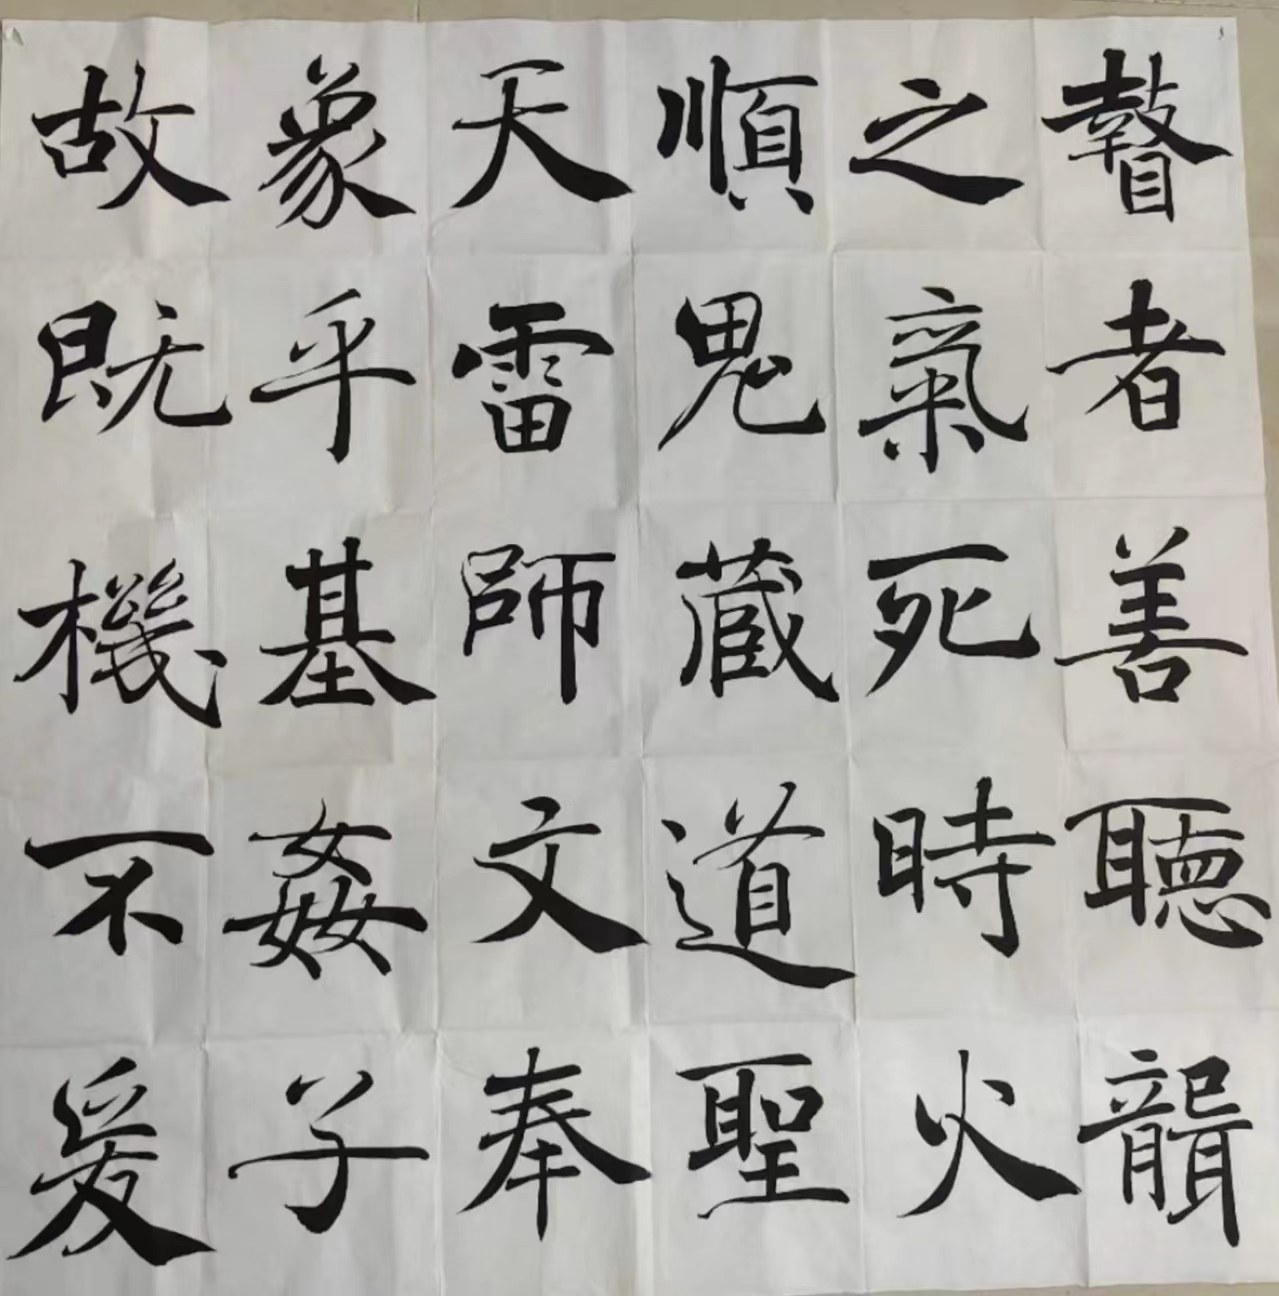 瞽者善聽聾
之氣死時火
順鬼藏道聖
天雷師文奉
象乎基姦子
故既機不爰